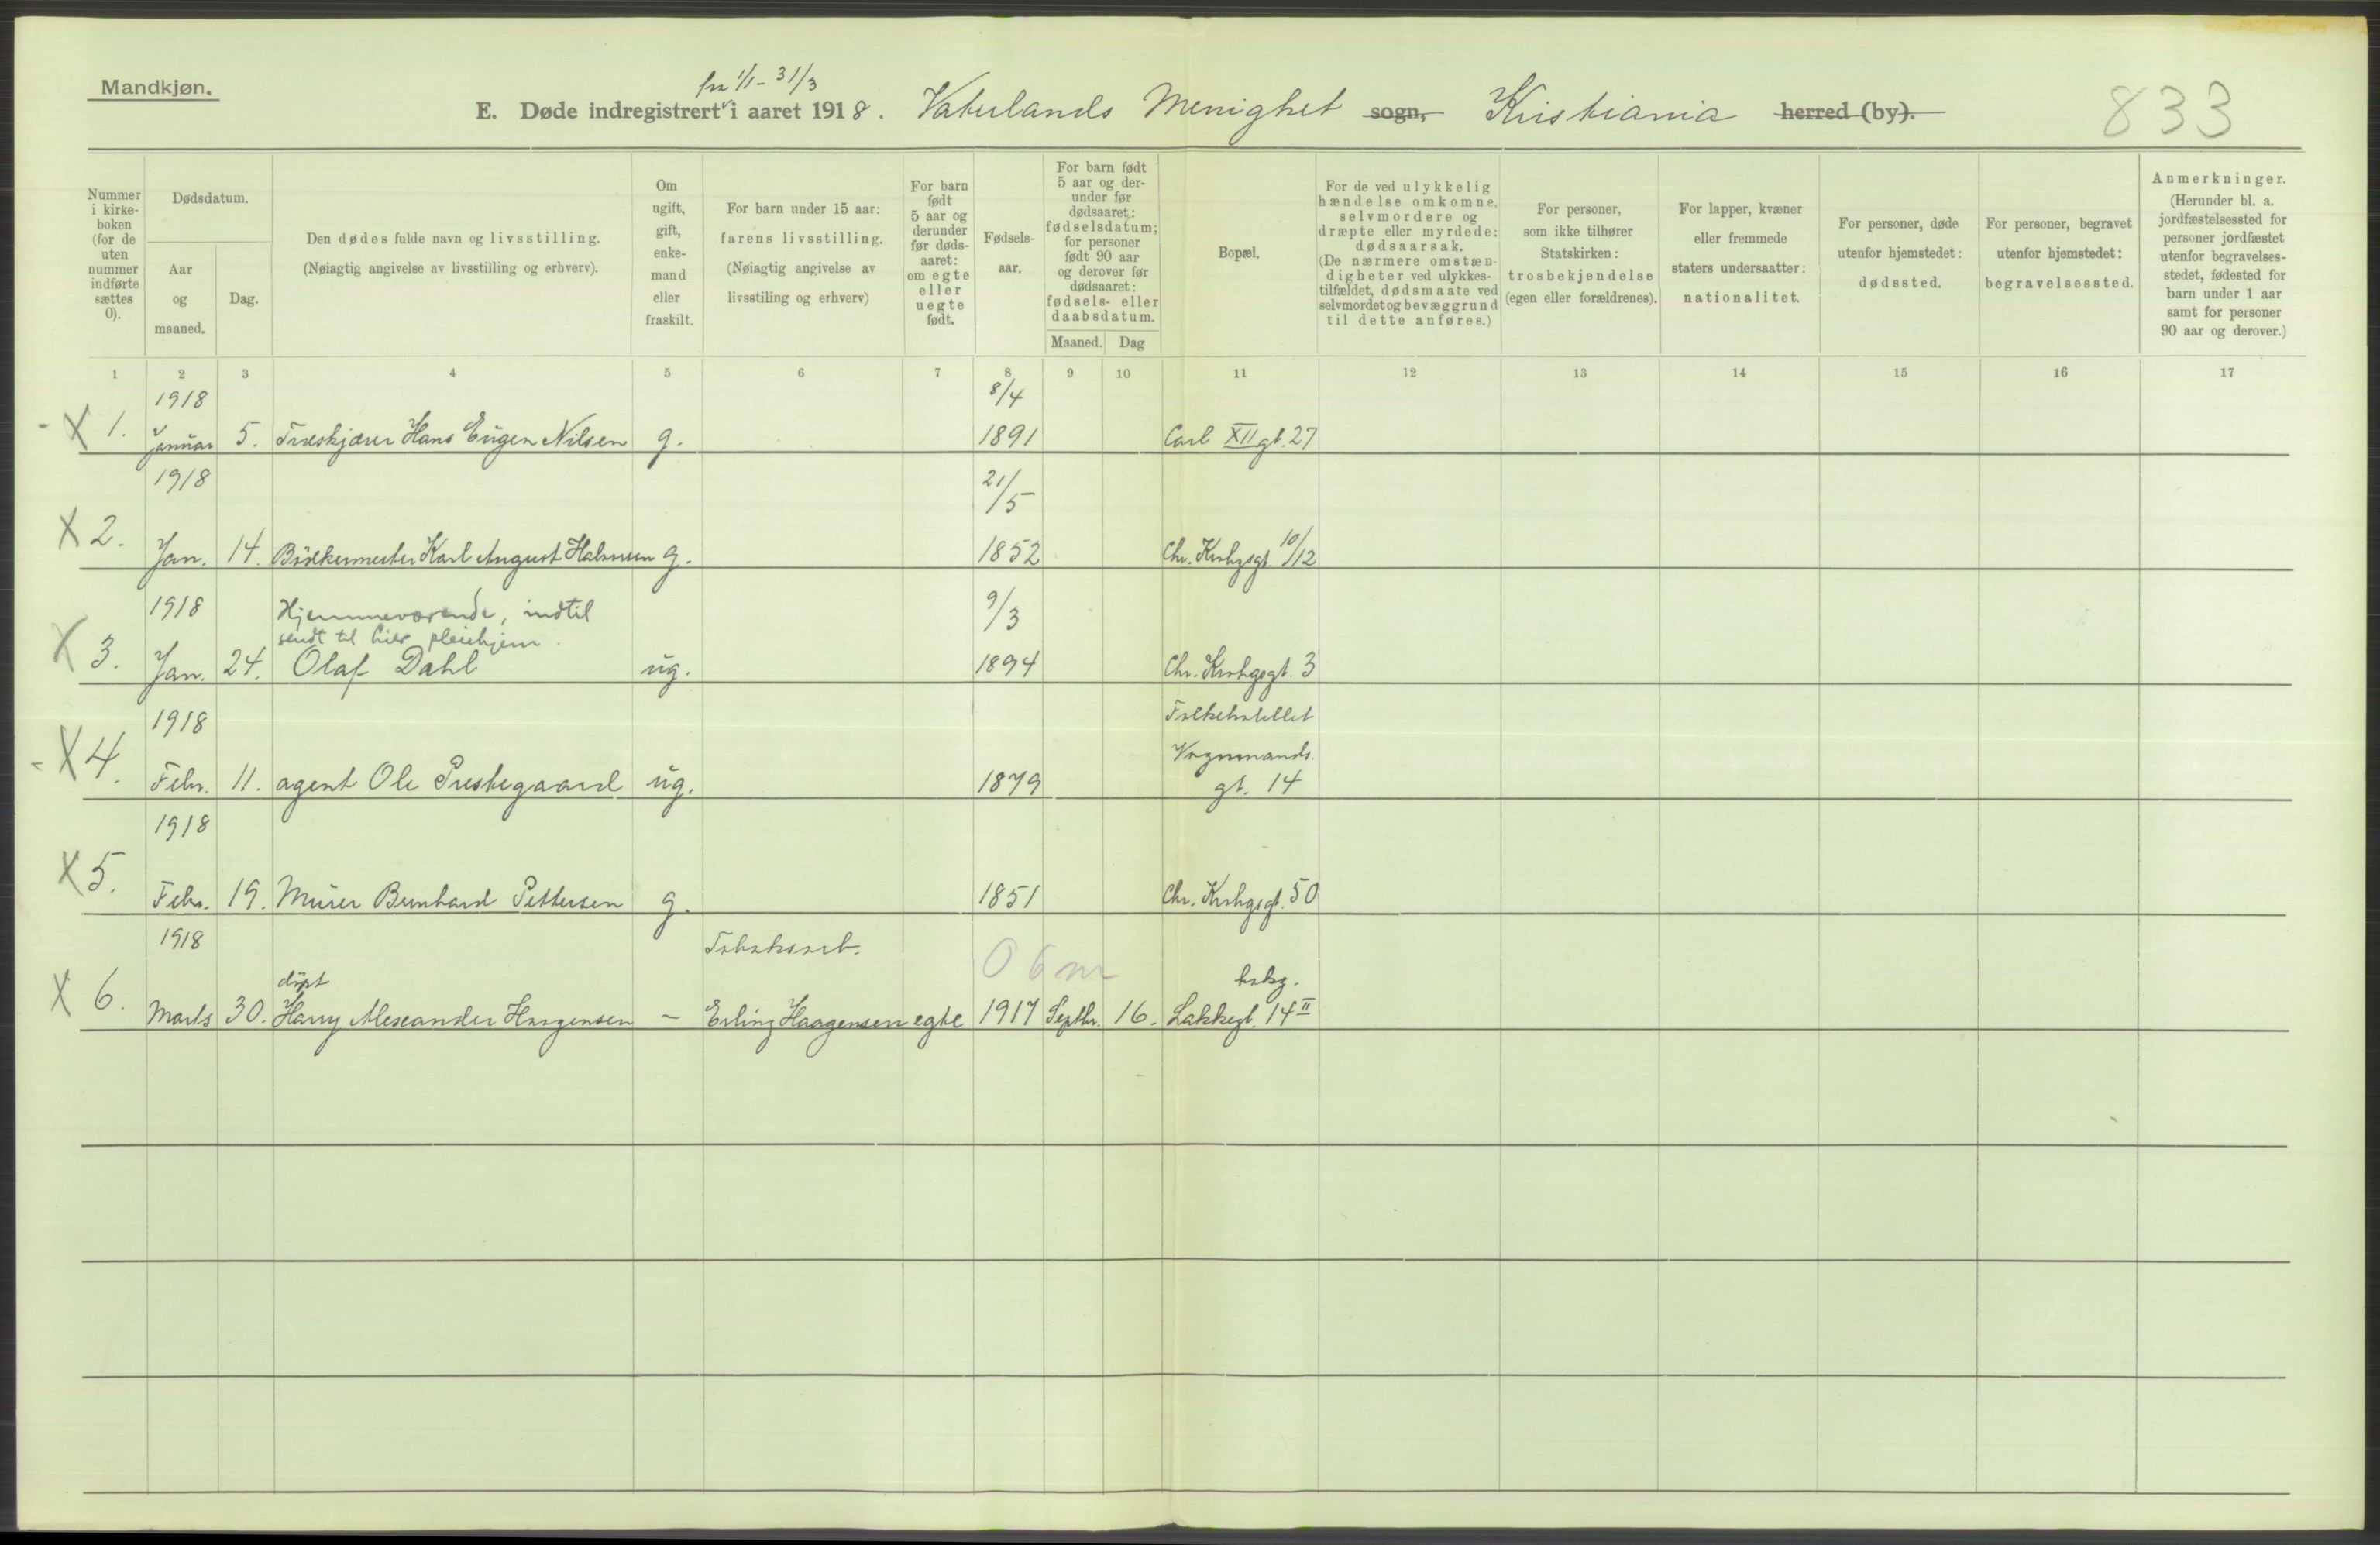 Mandkjøn.
fra 1/1 - 31/3
E. Døde indregistrert i aaret 1918. Vaterlands Menighet sogn, Kristiania herred (by).
833
Nummer i kirke-boken (for de uten nummer indførte sættes 0).
Dødsdatum.
Aar og maaned.
Dag.
Den dødes fulde navn og livsstilling.
(Nøiagtig angivelse av livsstilling og erhverv).
Om ugift, gift, enke-mand eller fraskilt.
For barn under 15 aar: farens livsstilling.
(Nøiagtig angivelse av livsstiling og erhverv)
For barn født 5 aar og derunder før døds-aaret: om egte eller uegte født.
Fødsels-aar.
For barn født 5 aar og der-under før dødsaaret: fødselsdatum; for personer født 90 aar og derover før dødsaaret: fødsels- eller daabsdatum.
Maaned. Dag
Bopæl.
For de ved ulykkelig hændelse omkomne, selvmordere og dræpte eller myrdede: dødsaarsak.
(De nærmere omstæn-digheter ved ulykkes-tilfældet, dødsmaate ved selvmordet og bevæggrund til dette anføres.)
For personer, som ikke tilhører Statskirken: trosbekjendelse (egen eller forældrenes).
For lapper, kvæner eller fremmede staters undersaatter: nationalitet.
For personer, døde utenfor hjemstedet: dødssted.
For personer, begravet utenfor hjemstedet: begravelsessted.
Anmerkninger.
(Herunder bl. a. jordfæstelsessted for personer jordfæstet utenfor begravelses-stedet, fødested for barn under 1 aar samt for personer 90 aar og derover.)
1 2 3 4 5 6 7 8 9 10 11 12 13 14 15 16 17
1918 8/4
X 1. Januar 5. Træskjærer Hans Eugen Nilsen g. 1891 Carl XII gt. 27
1918 21/5
X 2. Jan. 14. Bödkermester Karl August Halvorsen g. 1852 Chr. Krohgsgt. 10/12
1918 Hjemmeværende, indtil 9/3
sendt til hier pleiehjem.
X 3. Jan. 24. Olaf Dahl ug. 1894 Chr. Krohgsgt. 3
1918 Folkehotellet
Vognmands.
X 4. Febr. 11. agent Ole Prestegaard ug. 1879 gt. 14
1918
X 5. Febr. 19. Murer Bernhard Pettersen g. 1851 Chr. Krohgsgt. 50
1918 Tobaksarb. 0 6 m
döpt
X 6. Marts 30. Harry Alexander Haagensen – Erling Haagensen egte 1917 Septbr. 16. Lakkegt. 14 II